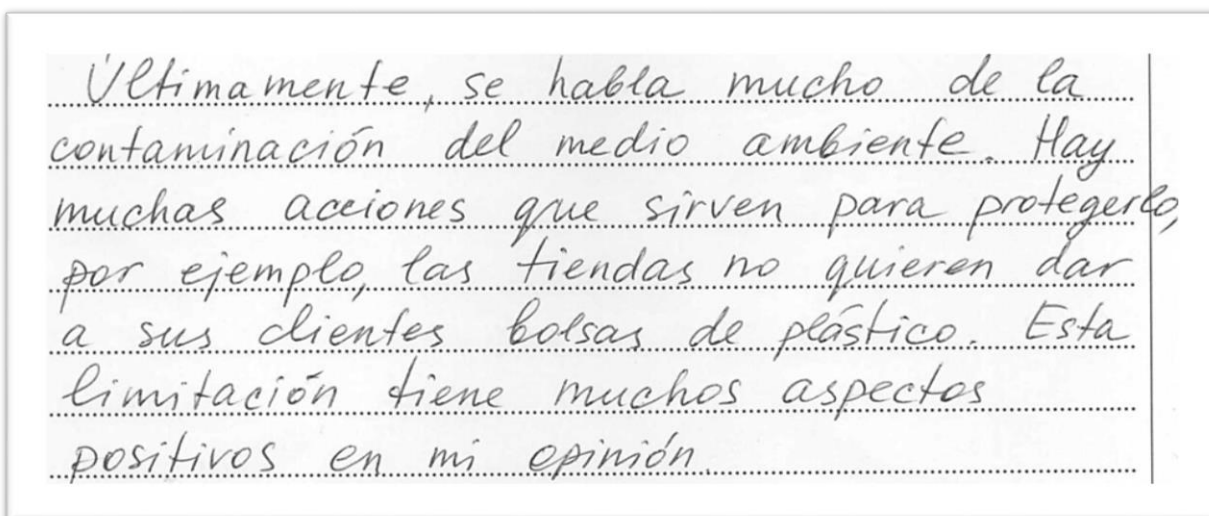 Últimamente, se habla mucho de la
contaminación del medio ambiente. Hay
muchas acciones que sirven para protegerlo,
por ejemplo, las tiendas no quieren dar
a sus clientes bolsas de plástico. Esta
limitación tiene muchos aspectos
positivos en mi opinión.